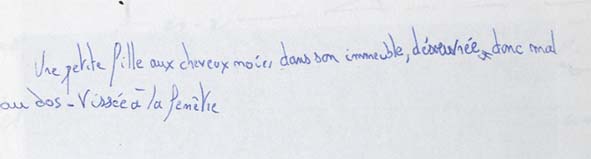 Une petite fille aux cheveux noirs, dans son immeuble, désœuvrée, donc mal
au dos - Vissée à la fenêtre